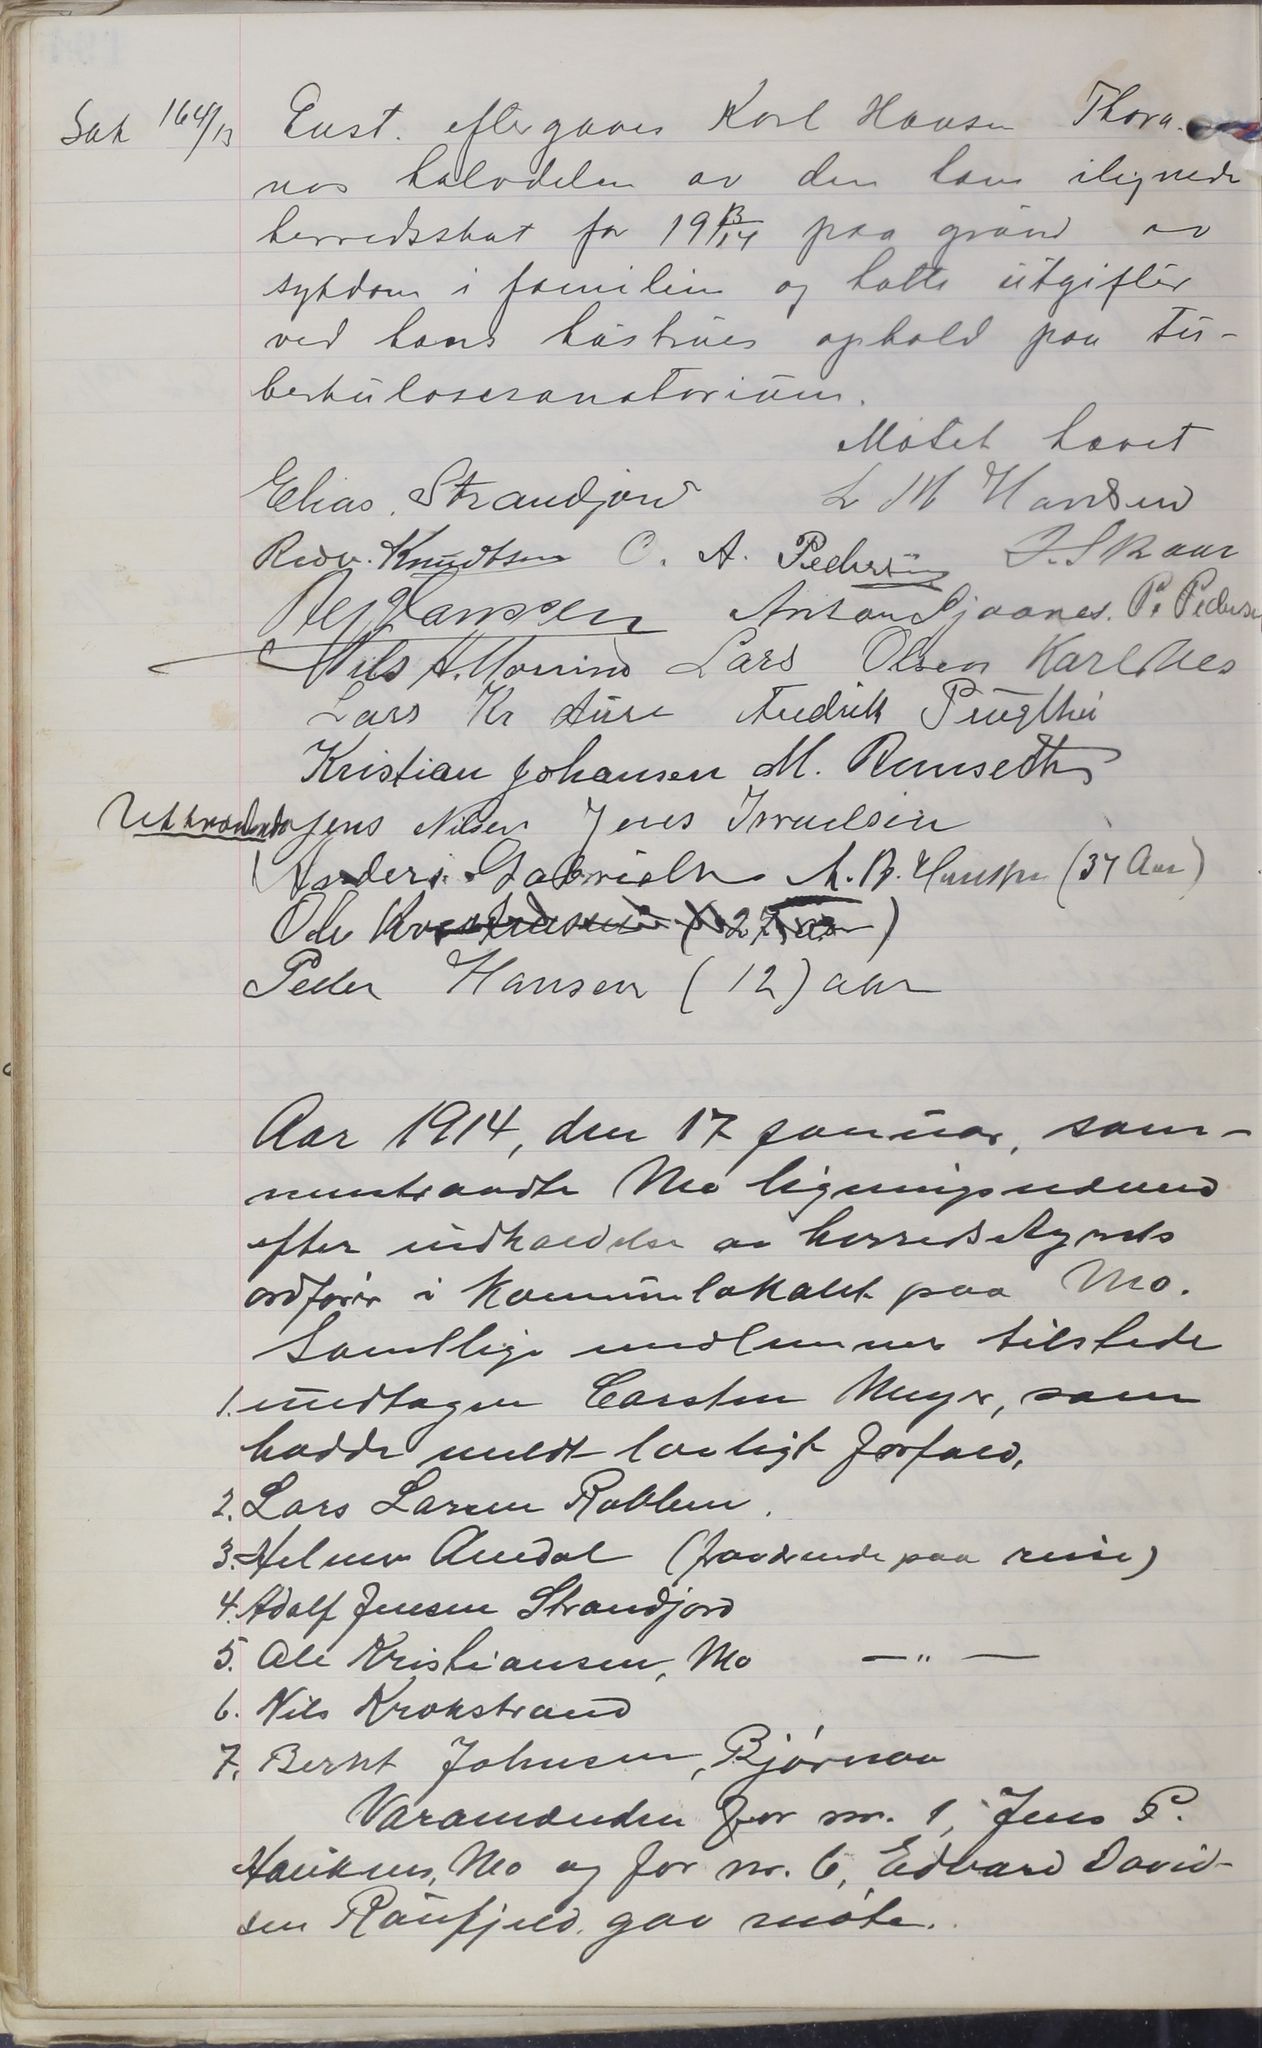 Sak 164/13 Enst. eftergaves Karl Hansen Thora-
nes halvdelen av den ham ilignede
herredsskat for 1913/14 paa grund av
sykdom i familien og hatte utgifter
ved hans hustrues ophold paa tu-
berkulosesanatorium.
Møtet hævet
Elias Strandjord L M Hansen
Redv. Knudtsen O. A. Pedersen I. Skaar
Hanssen Anton Gjaanes. P. Pedersen
Nils A. Lars Olsen Karl Nes
Lars Kr Fredrik
Kristian Johansen M. Ramseth
Uttrædende Jens Nilsen Jens Israelsen
Anders Gabrielsen A. B. Hansen (37 Aar)
Ole
Peder Hansen (12) aar
Aar 1914, den 17 januar, sam-
mentraadte Mo ligningsnævnd
efter indkaldelse av herredsstyrets
ordfører i kommunelokalet paa Mo.
Samtlige medlemmer tilstede
1. undtagen Carsten Meyer, som
hadde meldt lovligt forfald,
2. Lars Larsen
3. Helmer Amdal (fraværende paa reise)
4. Adolf Jensen Strandjord
5. Ole Kristiansen, Mo —„—
6. Nils Krokstrand
7. Bernt Johnsen, Bjørnaa
Varamænden for nr. 1, Jens P.
Mo og for nr. 6, Edvard David-
sen Raufjeld gav møte.